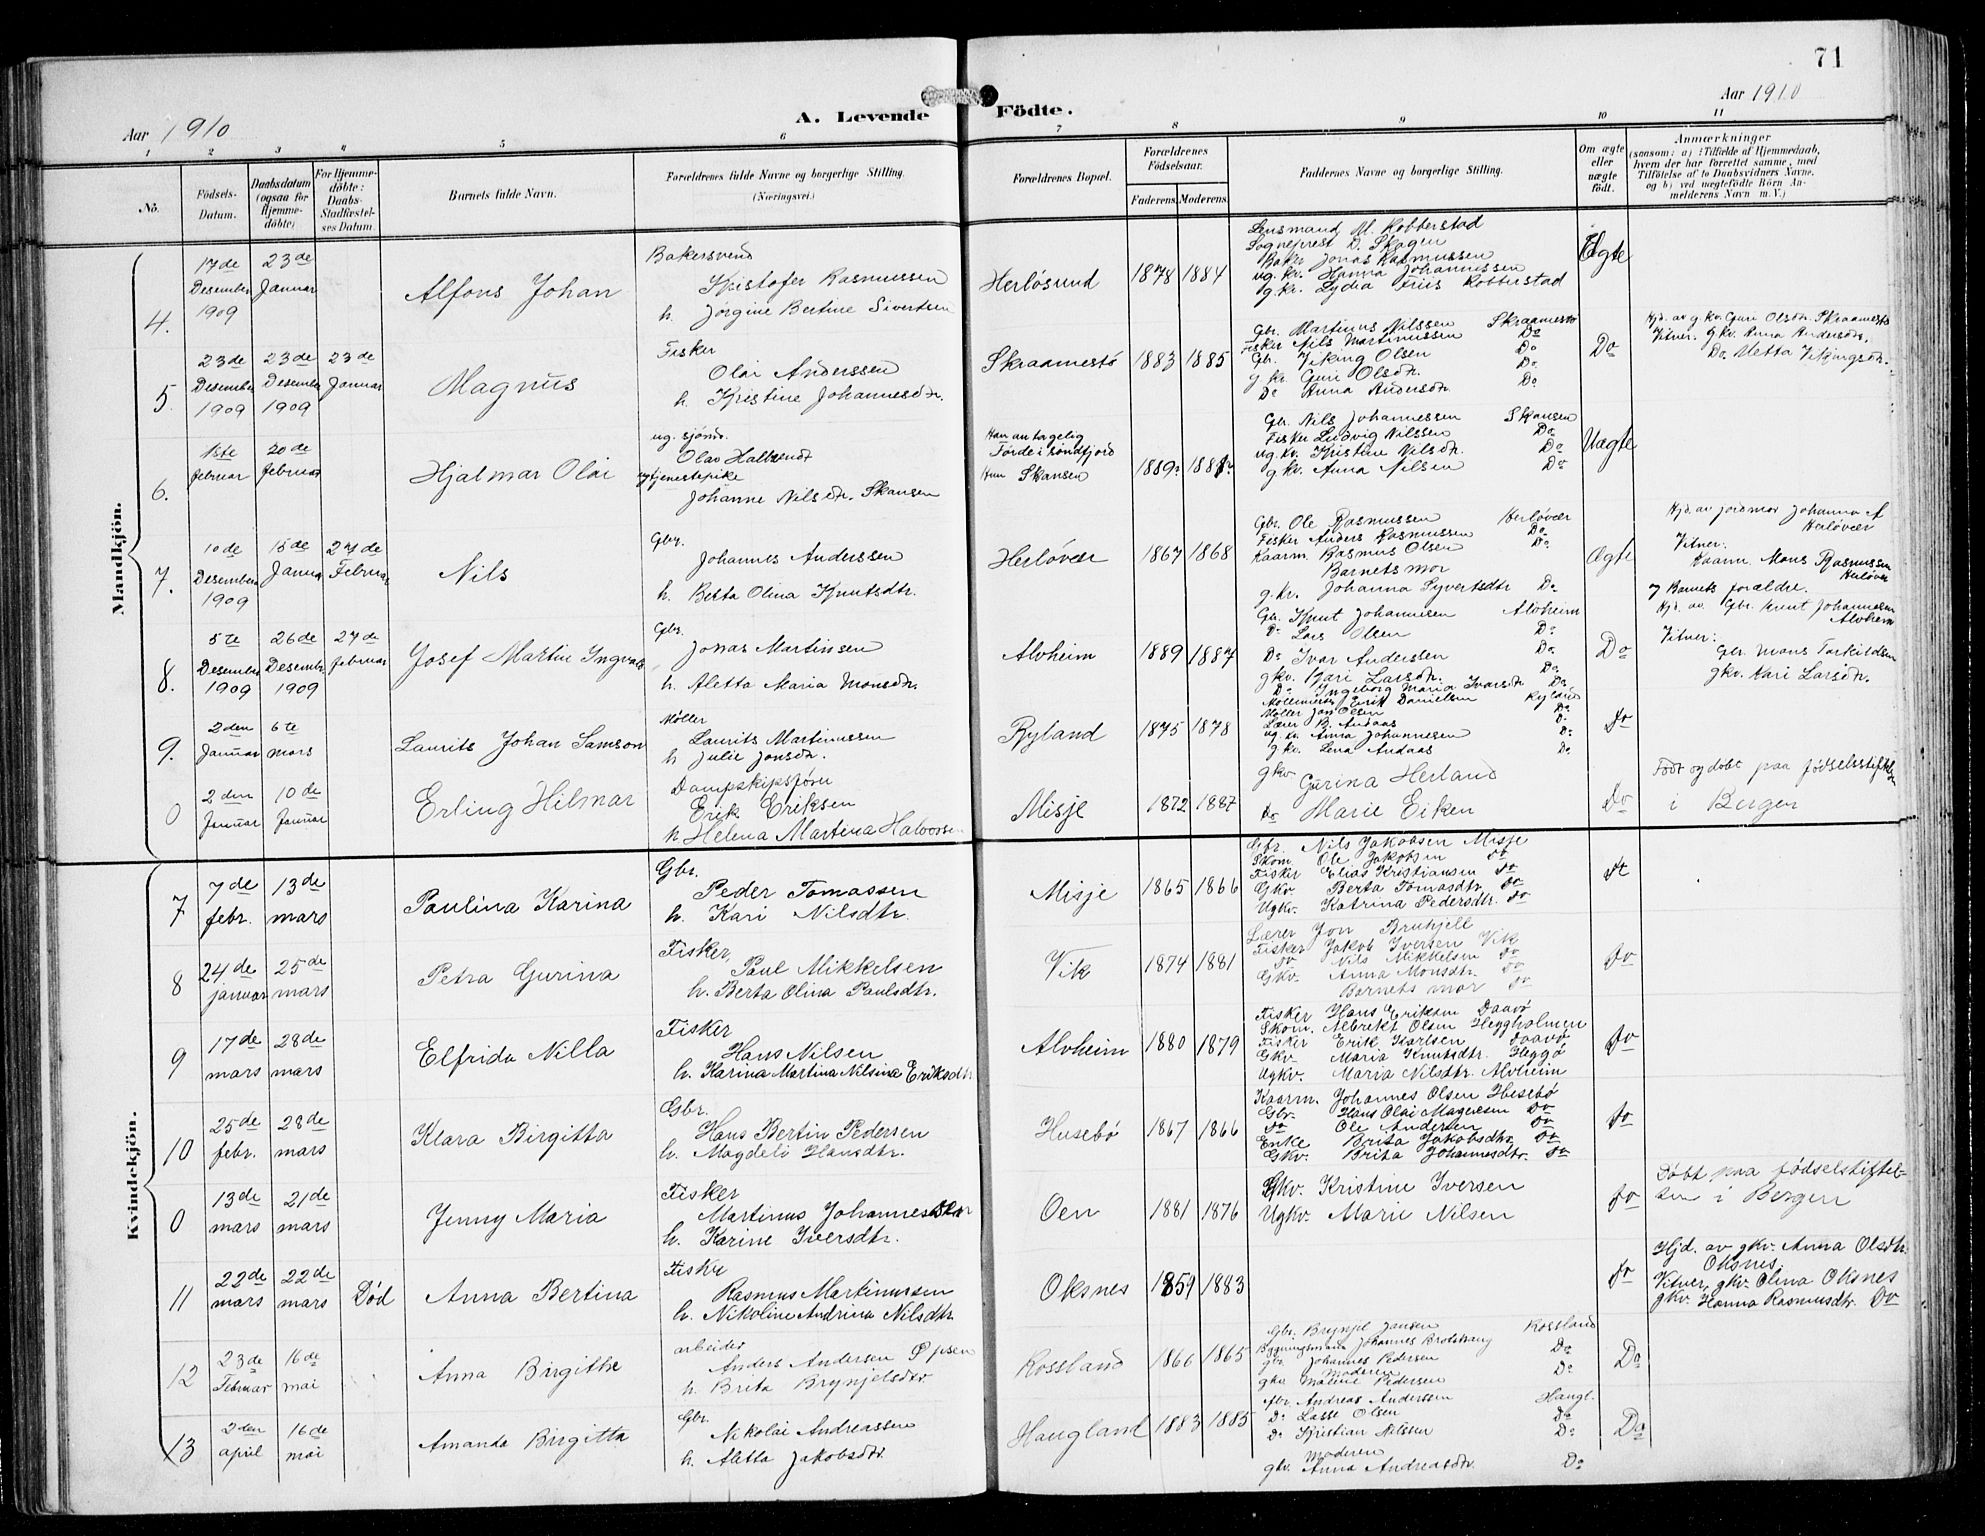 71
Aar 1910
A. Levende Födte.
Aar 1910
1 2 3 4 5 6 7 8 9 10 11
No.
Födsels-Datum.
Daabsdatum (ogsaa for Hjemme-döbte)
For Hjemme-döbte: Daabs-Stadfæstel-ses Datum.
Barnets fulde Navn.
Forældrenes fulde Navne og borgerlige Stilling. (Næringsvei.)
Forældrenes Bopæl.
Forældrenes Födselsaar.
Faderens. Moderens.
Faddernes Navne og borgerlige Stilling.
Om ægte eller uægte födt.
Anmærkninger
(saasom: a) i Tilfælde af Hjemmedaab,
hvem der har forrettet samme, med
Tilföielse af to Daabsvidners Navne,
og b) ved uægtefödte Börn An-
melderens Navn m. V.)
Mandkjön.
4. 17de Desember 1909 23de Januar
Alfons Johan
Bakersvend
Kristofer Rasmussen
h. Jørgine Bertine Sivertsen
Herløsund 1878 1884
Lensmand M. Kobberstad
Sogneprest D. Skagen
Baker Jonas Rasmussen
ug. kv. Hanna Johannessen
g. kv. Lydia Friis Kobberstad
Ægte
5. 23de Desember 1909 23de Desember 1909 23de Januar
Magnus
Fisker
Olai Anderssen
h. Kristine Johannesdtr.
Skraamestø 1883 1885
Gbr. Martinus Nilssen Skraamestø
Fisker Nils Martinussen Do
Gbr. Viking Olsen Do
g. kv. Guri Olsdtr. Do
Do Anna Andersdtr. Do
Do
Hjd. av g. kv. Guri Olsdtr. Skraamestø
Vitner: g kv. Anna Andersdtr.
Do. Metta Vikingsdtr.
6. 1ste februar 20de februar
Hjalmar Olai
ug. sjømd.
Olav
tjenestepike
Johanne Nilsdtr. Skansen
Han antagelig
Førde i Søndfjord
Hun Skansen
1889
Gbr. Nils Johannessen Skansen
Fisker Ludvig Nilssen Do
ug. kv. Kristine Nilsdtr. Do
g. kv. Anna Nilsen Do
Uægte
7. 10de Desember 1909 15de Januar 27de Februar
Nils
Gbr.
Johannes Anderssen
h. Berta Olina Knutsdtr.
Herløver 1867 1868
Gbr. Ole Rasmussen Herløver
Fisker Anders Rasmussen Do
Kaarm. Rasmus Olsen Do
Barnets mor
g. kv. Johanna Syvertsdtr Do
Ægte
Hjd. av jordmor Johanna A
Herløver
Vitner:
Kaarm. Mons Rasmussen
Herløver
og Barnets forældre.
8. 5te Desember 1909 26de Desember 1909 27de februar
Josef Martin Ingvald
Gbr.
Jonas Martinsen
h. Aletta Maria Monsdtr.
Alvheim 1889 1887
Gbr. Knut Johannesen Alvheim
Do Lars Olsen Do
Do Ivar Anderssen Do
g kv. Kari Larsdtr. Do
Do Ingeborg Maria Ivarsdtr Do
Do
Hjd. av. Gbr. Knut Johannesen
Alvheim
Vitner:
Gbr. Mons Torkildsen
gkv. Kari Larsdtr.
9. 2den Januar 6te mars
Laurits Johan Samson
Møller
Laurits Martinussen
h Julie Jonsdtr.
Ryland 1875 1878
Møllemester Erik Danielsen Ryland
Møller Jon Olsen Do
Lærer B. Andaas Do
ug. kv. Anna Johannesen Do
g. kv. Lena Andaas Do
Do
0 2den Januar 10de Januar
Erling Hilmar
Dampskipsfører
Erik Eriksen
h Helena Martina Halvorsen
Misje 1872 1887
gkv Gurina Herland
Do Marie Eiken
Do
Født og døbt paa fødselsstiftelsen
i Bergen
Kvindekjön.
7 7de febr. 13de mars
Paulina Karina
Gbr.
Peder Tomassen
h. Kari Nilsdtr.
Misje 1865 1866
Gbr. Nils Jakobsen Misje
Skom. Ole Jakobsen do
Fisker Elias Kristiansen do
Gkv. Berta Tomasdtr. do
Ugkv. Katrina Pedersdtr. do
8 24de januar 25de mars
Petra Gurina
Fisker,
Paul Mikkelsen
h. Berta Olina Paulsdtr.
Vik 1874 1881
Lærer Jon Bruhjell
Fisker Jakob Iversen Vik
do Nils Mikkelsen do
Gkv. Anna Monsdtr. do
Barnets mor do
do
9 17de mars 28de mars
Elfrida Nilla
Fisker
Hans Nilsen
h. Karina Martina Nilsina Eriksdtr.
Alvheim 1880 1879
Fisker Hans Eriksen Daavø
Skom. Albrekt Olsen Heggholmen
Fisker Erik Karlsen Daavø
Gkv. Maria Knutsdtr. Heggø
Ugkv. Maria Nilsdtr. Alvheim
do
10 25de febr. 28de mars
Klara Birgitta
Gbr.
Hans Bertin Pedersen
h. Magdeli Hansdtr.
Husebø 1867 1866
Kaarm. Johannes Olsen Husebø
Gbr. Hans Olai Magnesen do
do Ole Andersen do
Enke Brita Jakobsdtr. do
Gkv. Brita Johannesdtr. do
do
0 13de mars 21de mars
Jenny Maria
Fisker
Martinus Johannessen
h. Karine Iversdtr.
Oen 1881 1876
Gkv. Kristine Iversen
Ugkv. Marie Nilsen
do
Døbt paa fødselstiftel-
sen i Bergen
11 22de mars 22de mars Død
Anna Bertina
Fisker
Rasmus Martinussen
h. Nikoline Andrina Nilsdtr.
Oksnes 1859 1883
do
Hjd. av gkv. Anna Olsdtr.
Oksnes,
Vitner, gkv. Olina Oksnes
gkv. Hanna Rasmusdtr. Do
12 23de Februar 16de mai
Anna Birgithe
arbeider
Anders Andersen
h. Brita Brynjelsdtr
Rossland 1866 1865
Gbr. Brynjel Jansen Rossland
Bygningsmand Johannes Do
gbr. Johannes Pedersen Do
Moderen
gkv Malene Pedersen
Do
13 2den april 16de mai
Amanda Birgitta
Gbr.
Nikolai Andreassen
h. Aletta Jakobsdtr.
Haugland 1883 1885
Gbr. Andreas Anderssen Haugl.
Do Lasse Olsen Do
Do Kristian Nilssen Do
Moderen
gkv. Anna Andreasdtr. Do
Do